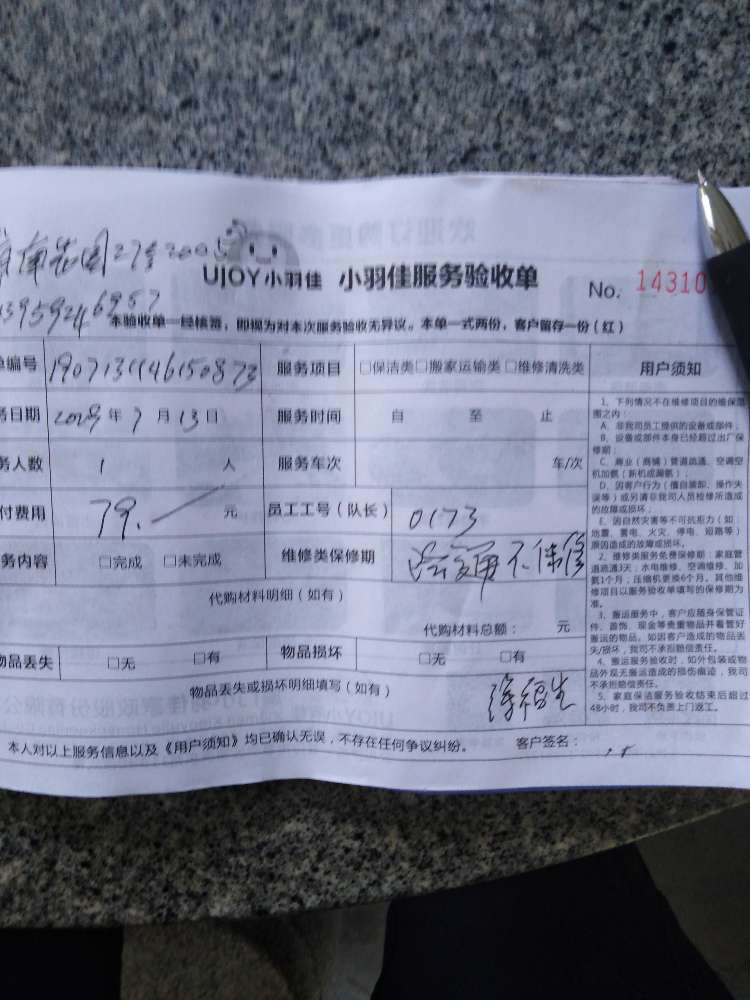 花园27号2005
UJOY小羽佳 小羽佳服务验收单 No. 14310
13959246957
本验收单一经核签，即视为对本次服务验收无异议。本单一式两份，客户留存一份（红）
编号 服务项目 □保洁类□搬家运输类□维修清洗类 用户须知
日期 年 7 月 13 日 服务时间 自 至 止
务人数 1 人 服务车次 车/次
付费用 79. 元 员工工号（队长） 0173
务内容 □完成 □未完成 维修类保修期 不保修
代购材料明细（如有）
代购材料总额： 元
物品丢失 □无 □有 物品损坏 □无 □有
物品丢失或损坏明细填写（如有）
本人对以上服务信息以及《用户须知》均已确认无误，不存在任何争议纠纷。 客户签名：
1、下列情况不在维修项目的维保范
围之内：
A、非我司员工提供的设备或部件；
B、设备或部件本身已经超过出厂保
修期；
C、商业（商铺）管道疏通、空调空
机加氨（新机或漏氨）；
D、因客户行为（擅自装卸、操作失
误等）或另请非我司人员检修所造成
的故障或损坏；
E、因自然灾害等不可抗拒力（如：
地震、雷电、火灾、停电、短路等）
原因造成的故障或损坏。
2、维修类服务免费保修期：家庭管
道疏通3天；水电维修、空调维修、加
氨1个月；压缩机更换6个月。其他维
修项目以服务验收单填写的保修期为
准。
3、搬运服务中，客户应随身保管证
件、首饰、现金等贵重物品并看管好
搬运的物品。如因客户造成的物品丢
失/损坏，我司不承担赔偿责任。
4、搬运服务验收时，如外包装或物
品外观无搬运造成的损伤痕迹，我司
不承担赔偿责任。
5、家庭保洁服务验收结束后超过
48小时，我司不负责上门返工。